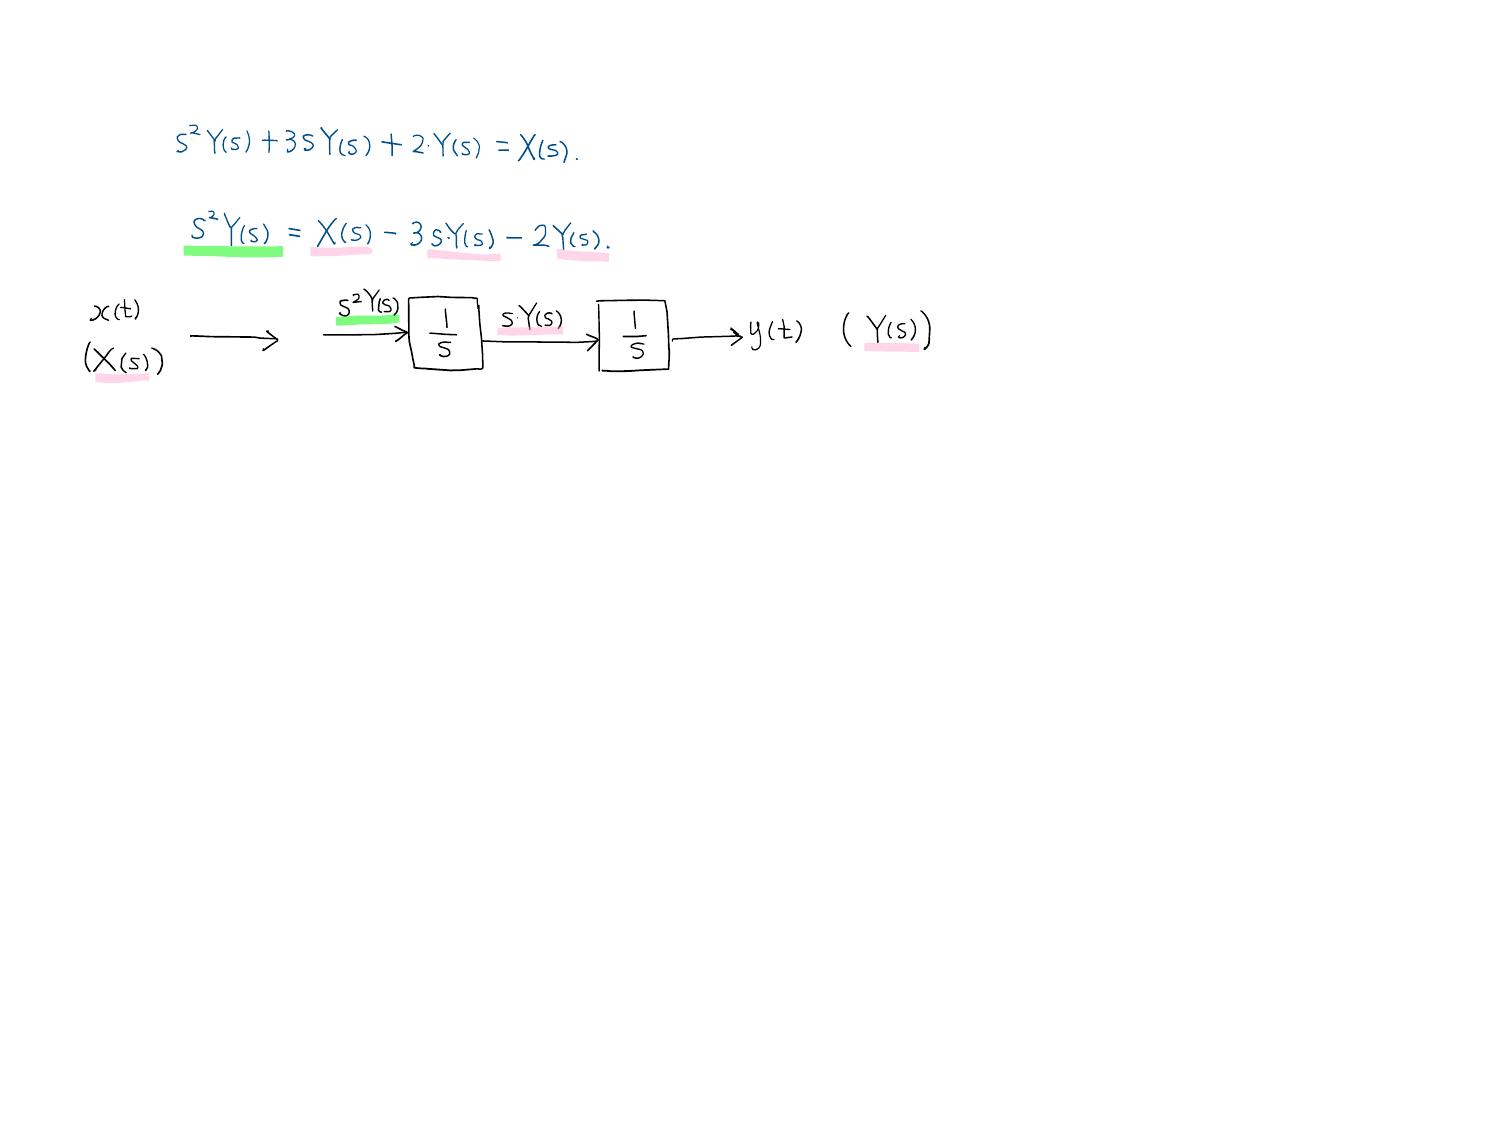 s²Y(s)+3sY(s)+2·Y(s) = X(s).
s²Y(s) = X(s) - 3s·Y(s) - 2Y(s).
x(t) s²Y(s) 1/s s·Y(s) 1/s y(t) (Y(s))
(X(s))